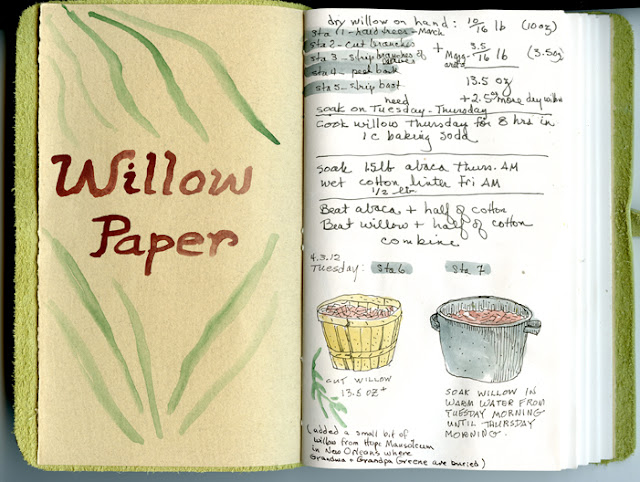 Willow
Paper
dry willow on hand: 10/16 lb (10oz)
Sta 1 - hard trees - March
Sta 2 - cut branches
Sta 3 - strip branches of leaves
+ 3.5/16 lb (3.5oz)
Sta 4 - peel bark
Sta 5 - strip bast
13.5 oz
need +2.5 oz more dry willow
soak on Tuesday - Thursday
Cook willow Thursday for 8 hrs in
1 c baking soda
soak 1.5 lb abaca Thurs. AM
wet cotton linter Fri AM
Beat abaca + half of cotton
Beat willow + half of cotton
combine
4.3.12
Tuesday: Sta 6 Sta 7
CUT WILLOW
13.5 OZ +
SOAK WILLOW IN
WARM WATER FROM
TUESDAY MORNING
UNTIL THURSDAY
MORNING.
(added a small bit of
willow from Hope Mausoleum
in New Orleans where
Grandma + Grandpa Greene are buried)